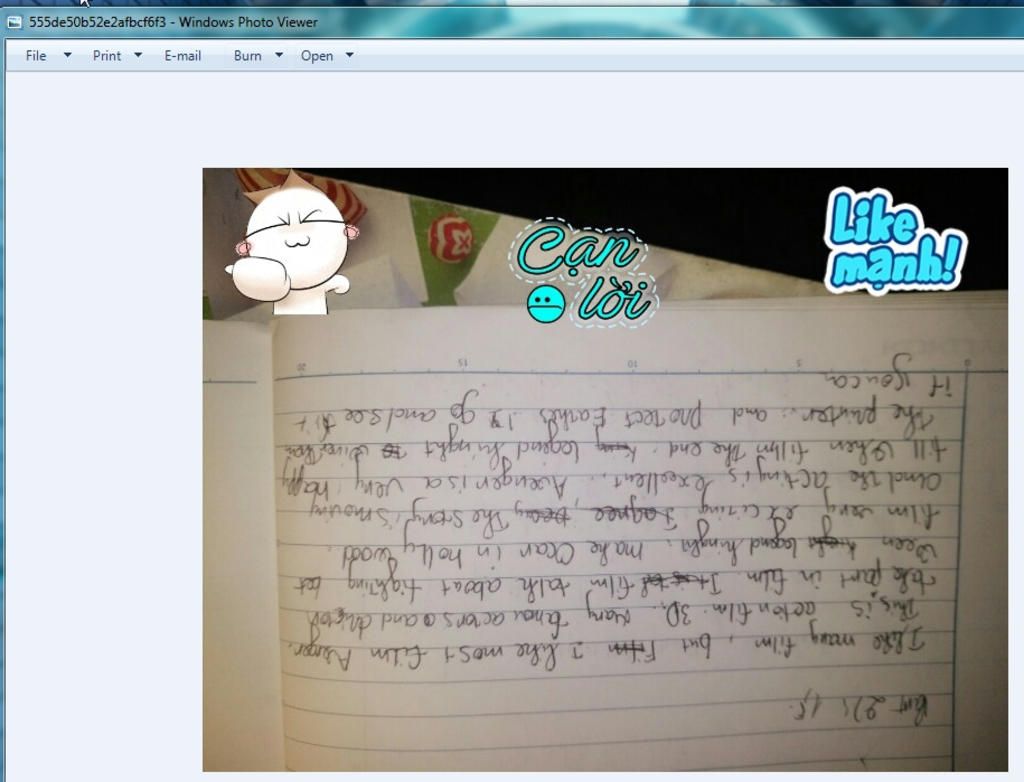 555de50b52e2afbcf6f3 - Windows Photo Viewer
File Print E-mail Burn Open
Cạn lời
Like mạnh!
0 5 10 15 20
Part 2): 1,5.
I like many film, but I like most film Avenger.
This is action film. 3D. Many actors and
take part in film. film talk about fighting bet
ween legend make in holly wood..
film very exciting, The story is moving
and the acting is excellent.. Avenger is a very happy
till when film the end. legend
the .. and protect go and see it
if you can